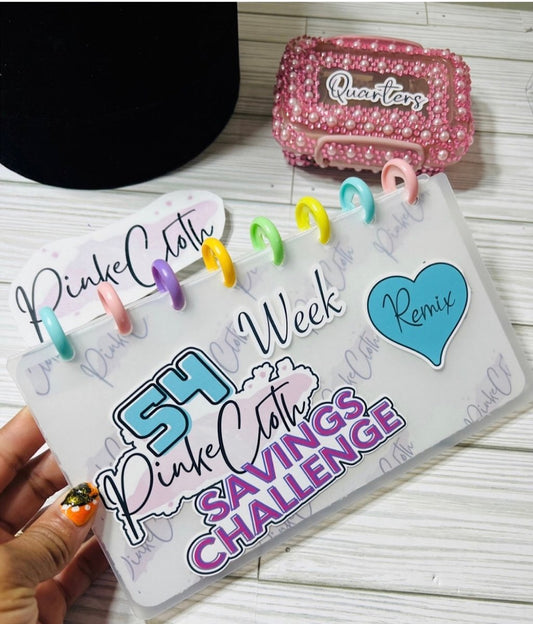 Quarters
PinkeCloth
Week
Remix
54
PinkeCloth
SAVINGS
CHALLENGE